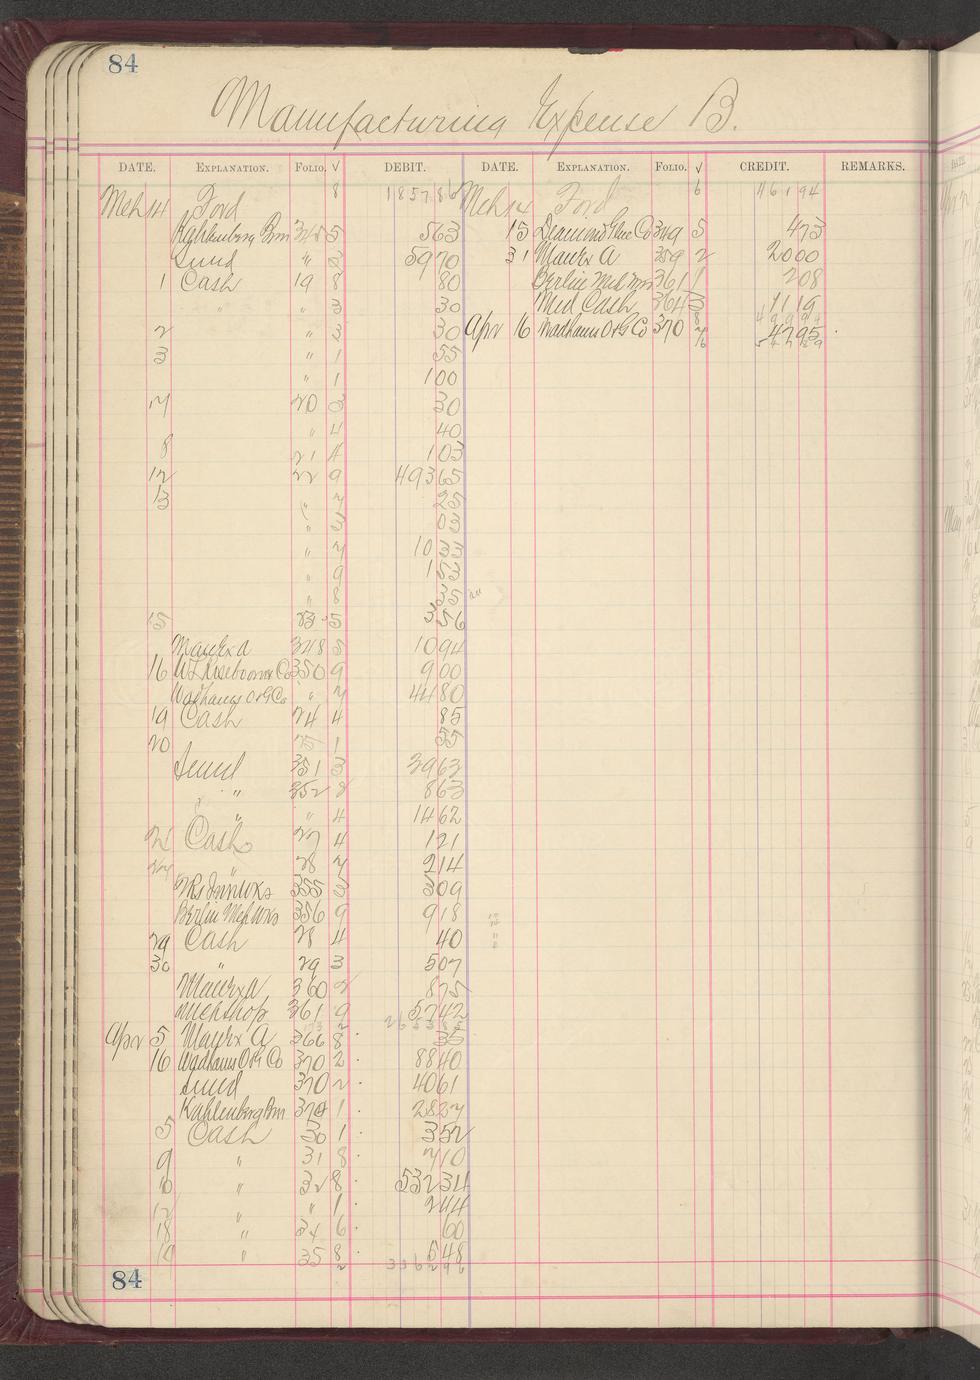 84
Manufacturing Expense B.
DATE. EXPLANATION. FOLIO. √ DEBIT. DATE. EXPLANATION. FOLIO. √ CREDIT. REMARKS.
Mch 14 Ford 8 18578 Mch 14 Ford 6 46194
Kahlenberg Bros 5 563 15 Diamond Glue Co 349 5 473
Sund " 3 5970 31 Maurx A 359 2 2000
1 Cash 19 8 80 Berlin 361 208
" " 3 30 Md Cash 364 3 1119
2 " 3 30 Apr 16 Wadhams O & G Co 370 4795
3 " 1 55
" 1 100
20 3 30
" 4 40
8 21 4 103
12 22 9 49365
13 " 7 25
" 3 03
" 7 1033
" 9 153
" 8 35
15 23 5 356
Maurx A 348 5 1094
16 350 9 900
Wadhams O & G Co " 7 4480
19 Cash 24 4 85
20 25 1 55
Sund 351 3 3963
" 352 8 863
" " 4 1462
Cash 27 4 121
" 28 7 214
355 3 309
Berlin 356 9 918
29 Cash 28 4 40
30 " 29 3 507
Maurx A 360 2 875
Mch Shop 361 9 5742
Apr 5 Maurx A 366 8 35
16 Wadhams O & G Co 370 2 8840
Sund 370 2 4061
Kahlenberg Bros 1 2827
5 Cash 30 1 352
9 " 31 8 710
10 " 32 8 53234
12 " " 1 244
18 " 34 6 60
" 35 8 648
84